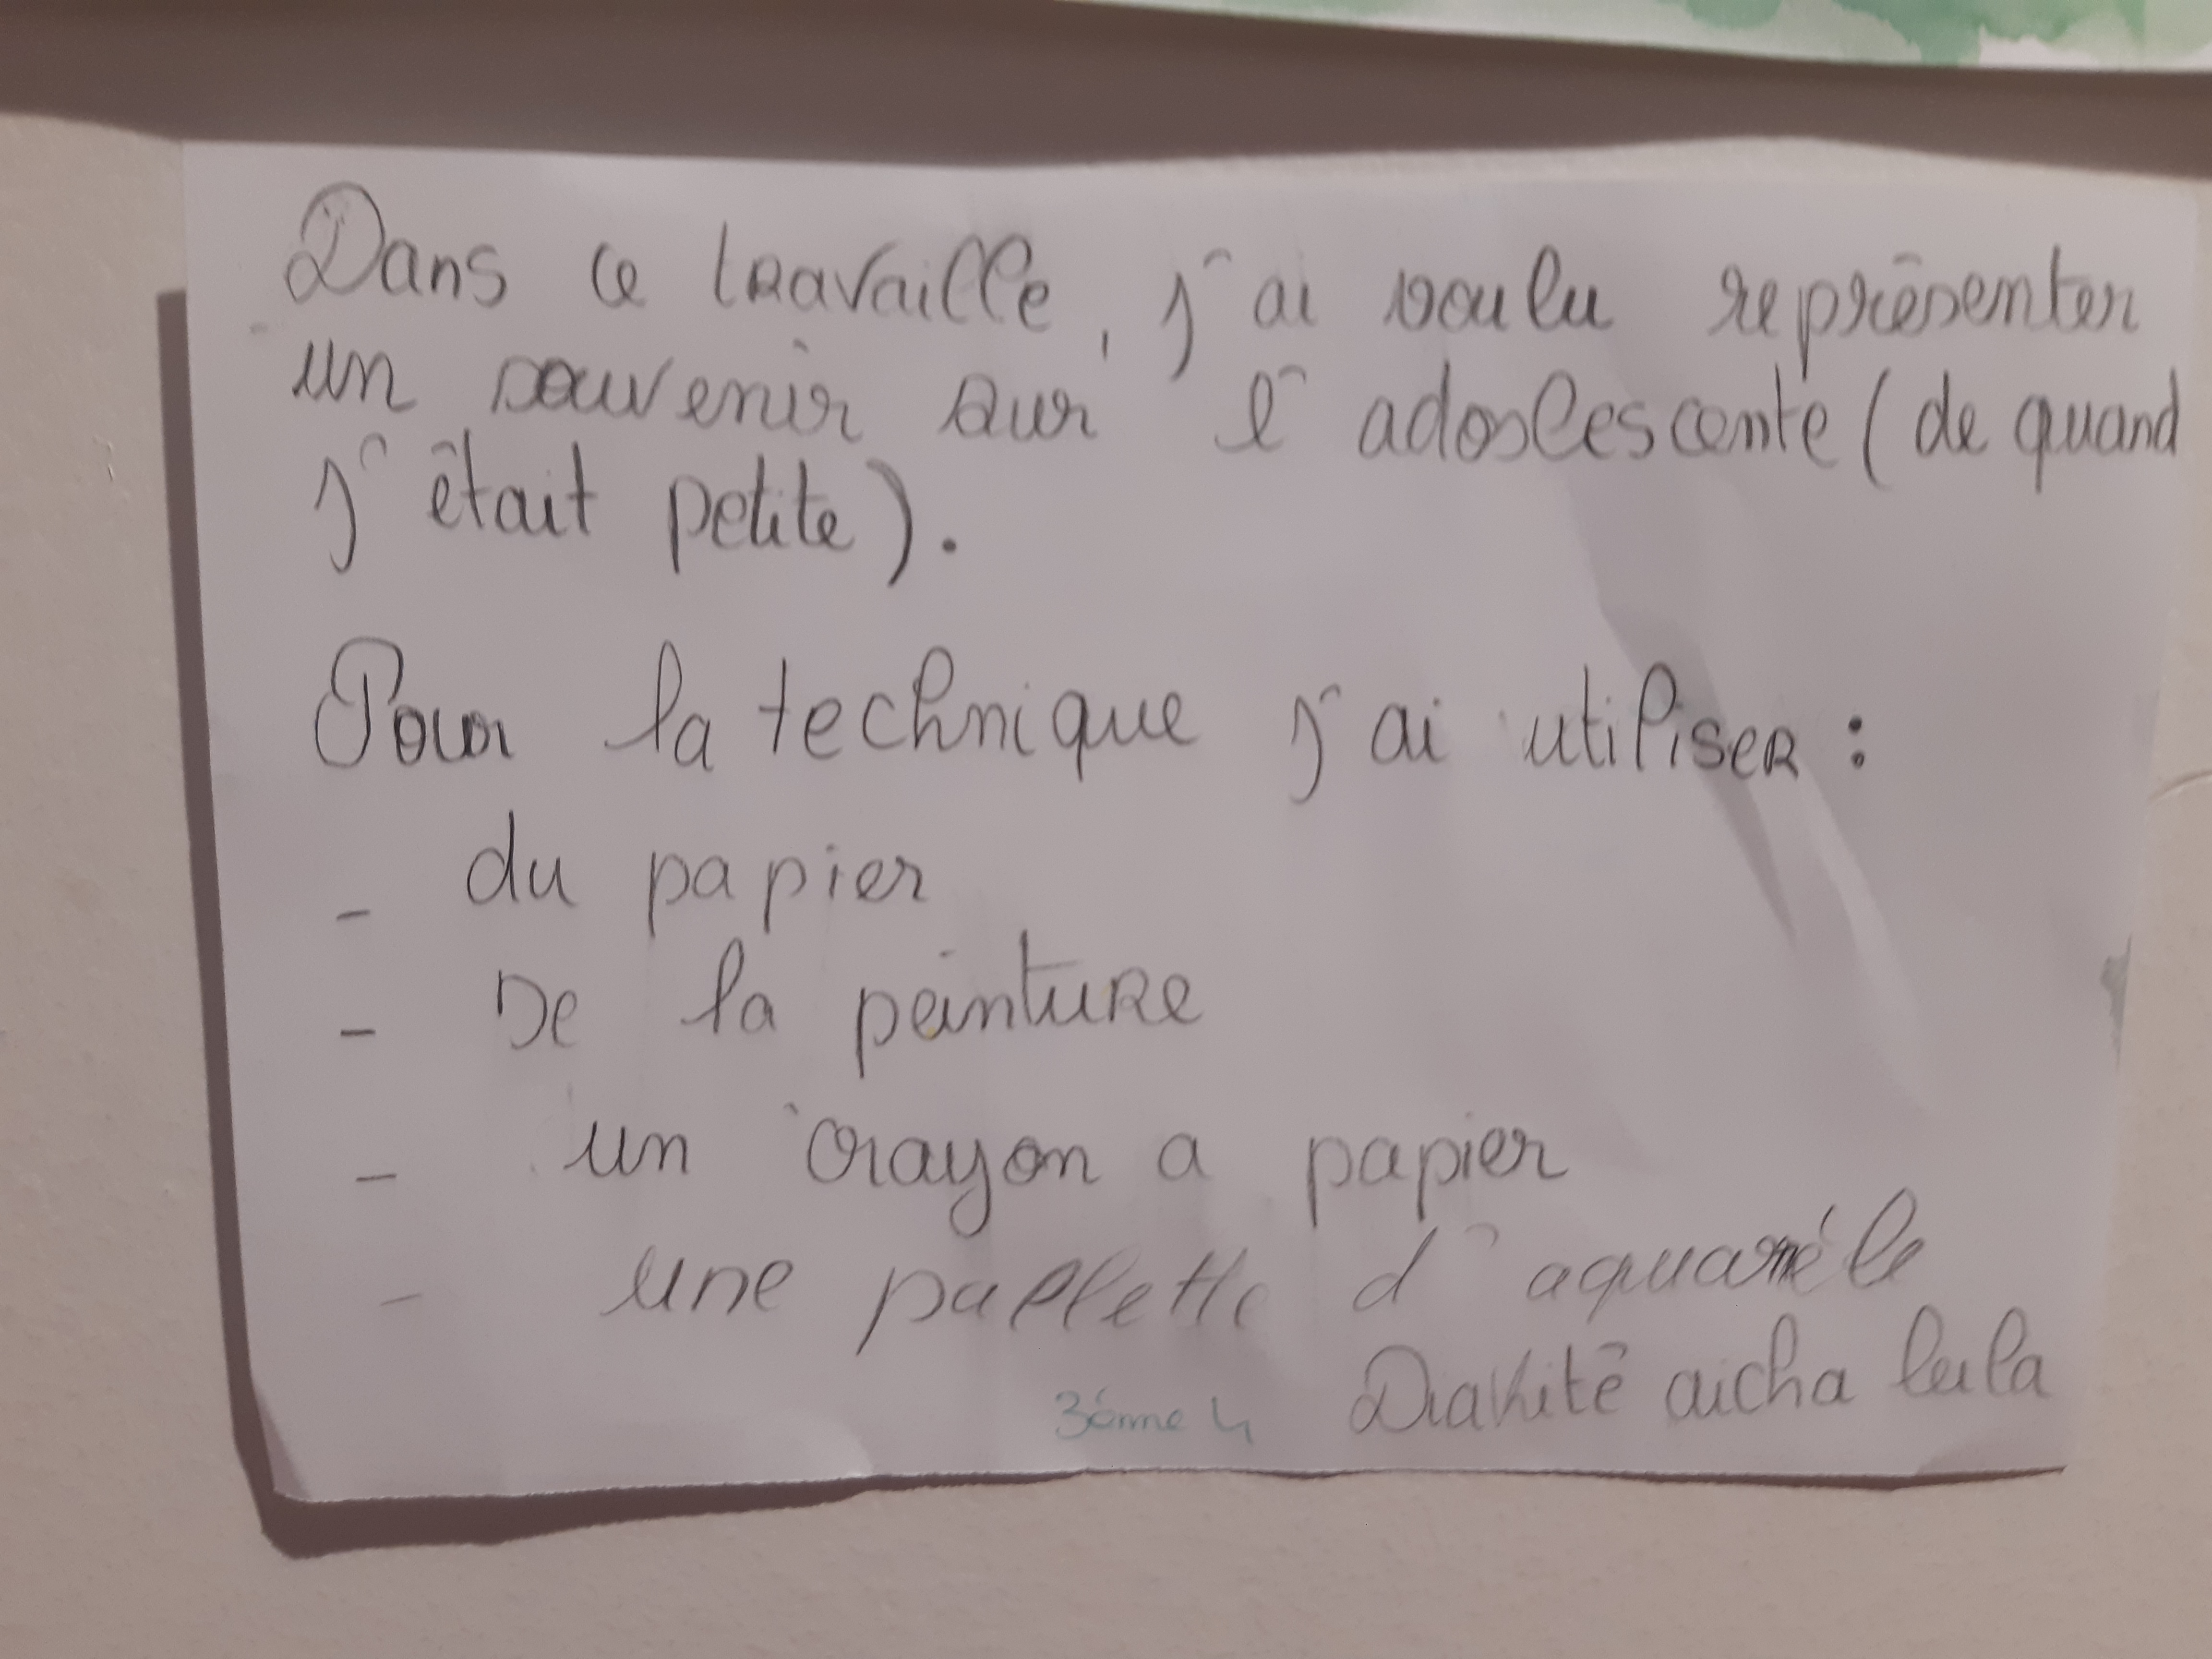 Dans ce travaille, j'ai voulu représenter
un souvenir sur l'adoslescente (de quand
j'était petite).
Pour la technique j'ai utiliser :
- du papier
- De la peinture
- un crayon a papier
- une pallette d'aquaréle
3éme 4 Diakité aicha leila